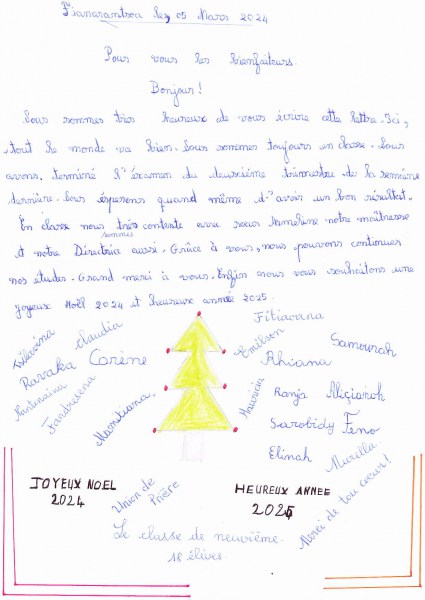 Fianarantsoa le, 05 Mars 2024
Pour vous les bienfaiteurs.
Bonjour!
Nous sommes très heureux de vous écrire cette lettre. Ici,
tout le monde va bien. Nous sommes toujours en classe. Nous
avons terminé l'éxamen du deuxième trimestre de la semaine
dernière. Nous éspérons quand même d'avoir un bon résultat.
En classe nous sommes très contente avec sœur Hameline notre maîtresse
et notre Directrice aussi. Grâce à vous, nous pouvons continues
nos études. Grand merci à vous. Enfin nous vous souhaitons une
joyeux Noël 2024 et heureuse année 2025.
claudia
Ravaka
Carène
Fandresena
Mamitiana
Fitiavana
Émilson
Samourah
Rhiana
Ranja
Sarobidy
Feno
Elinah
Murella
JOYEUX NOEL
2024
Union de
Prière
HEUREUX ANNEE
2025
Merci de tou cœur!
Le classe de neuvième.
18 élèves.